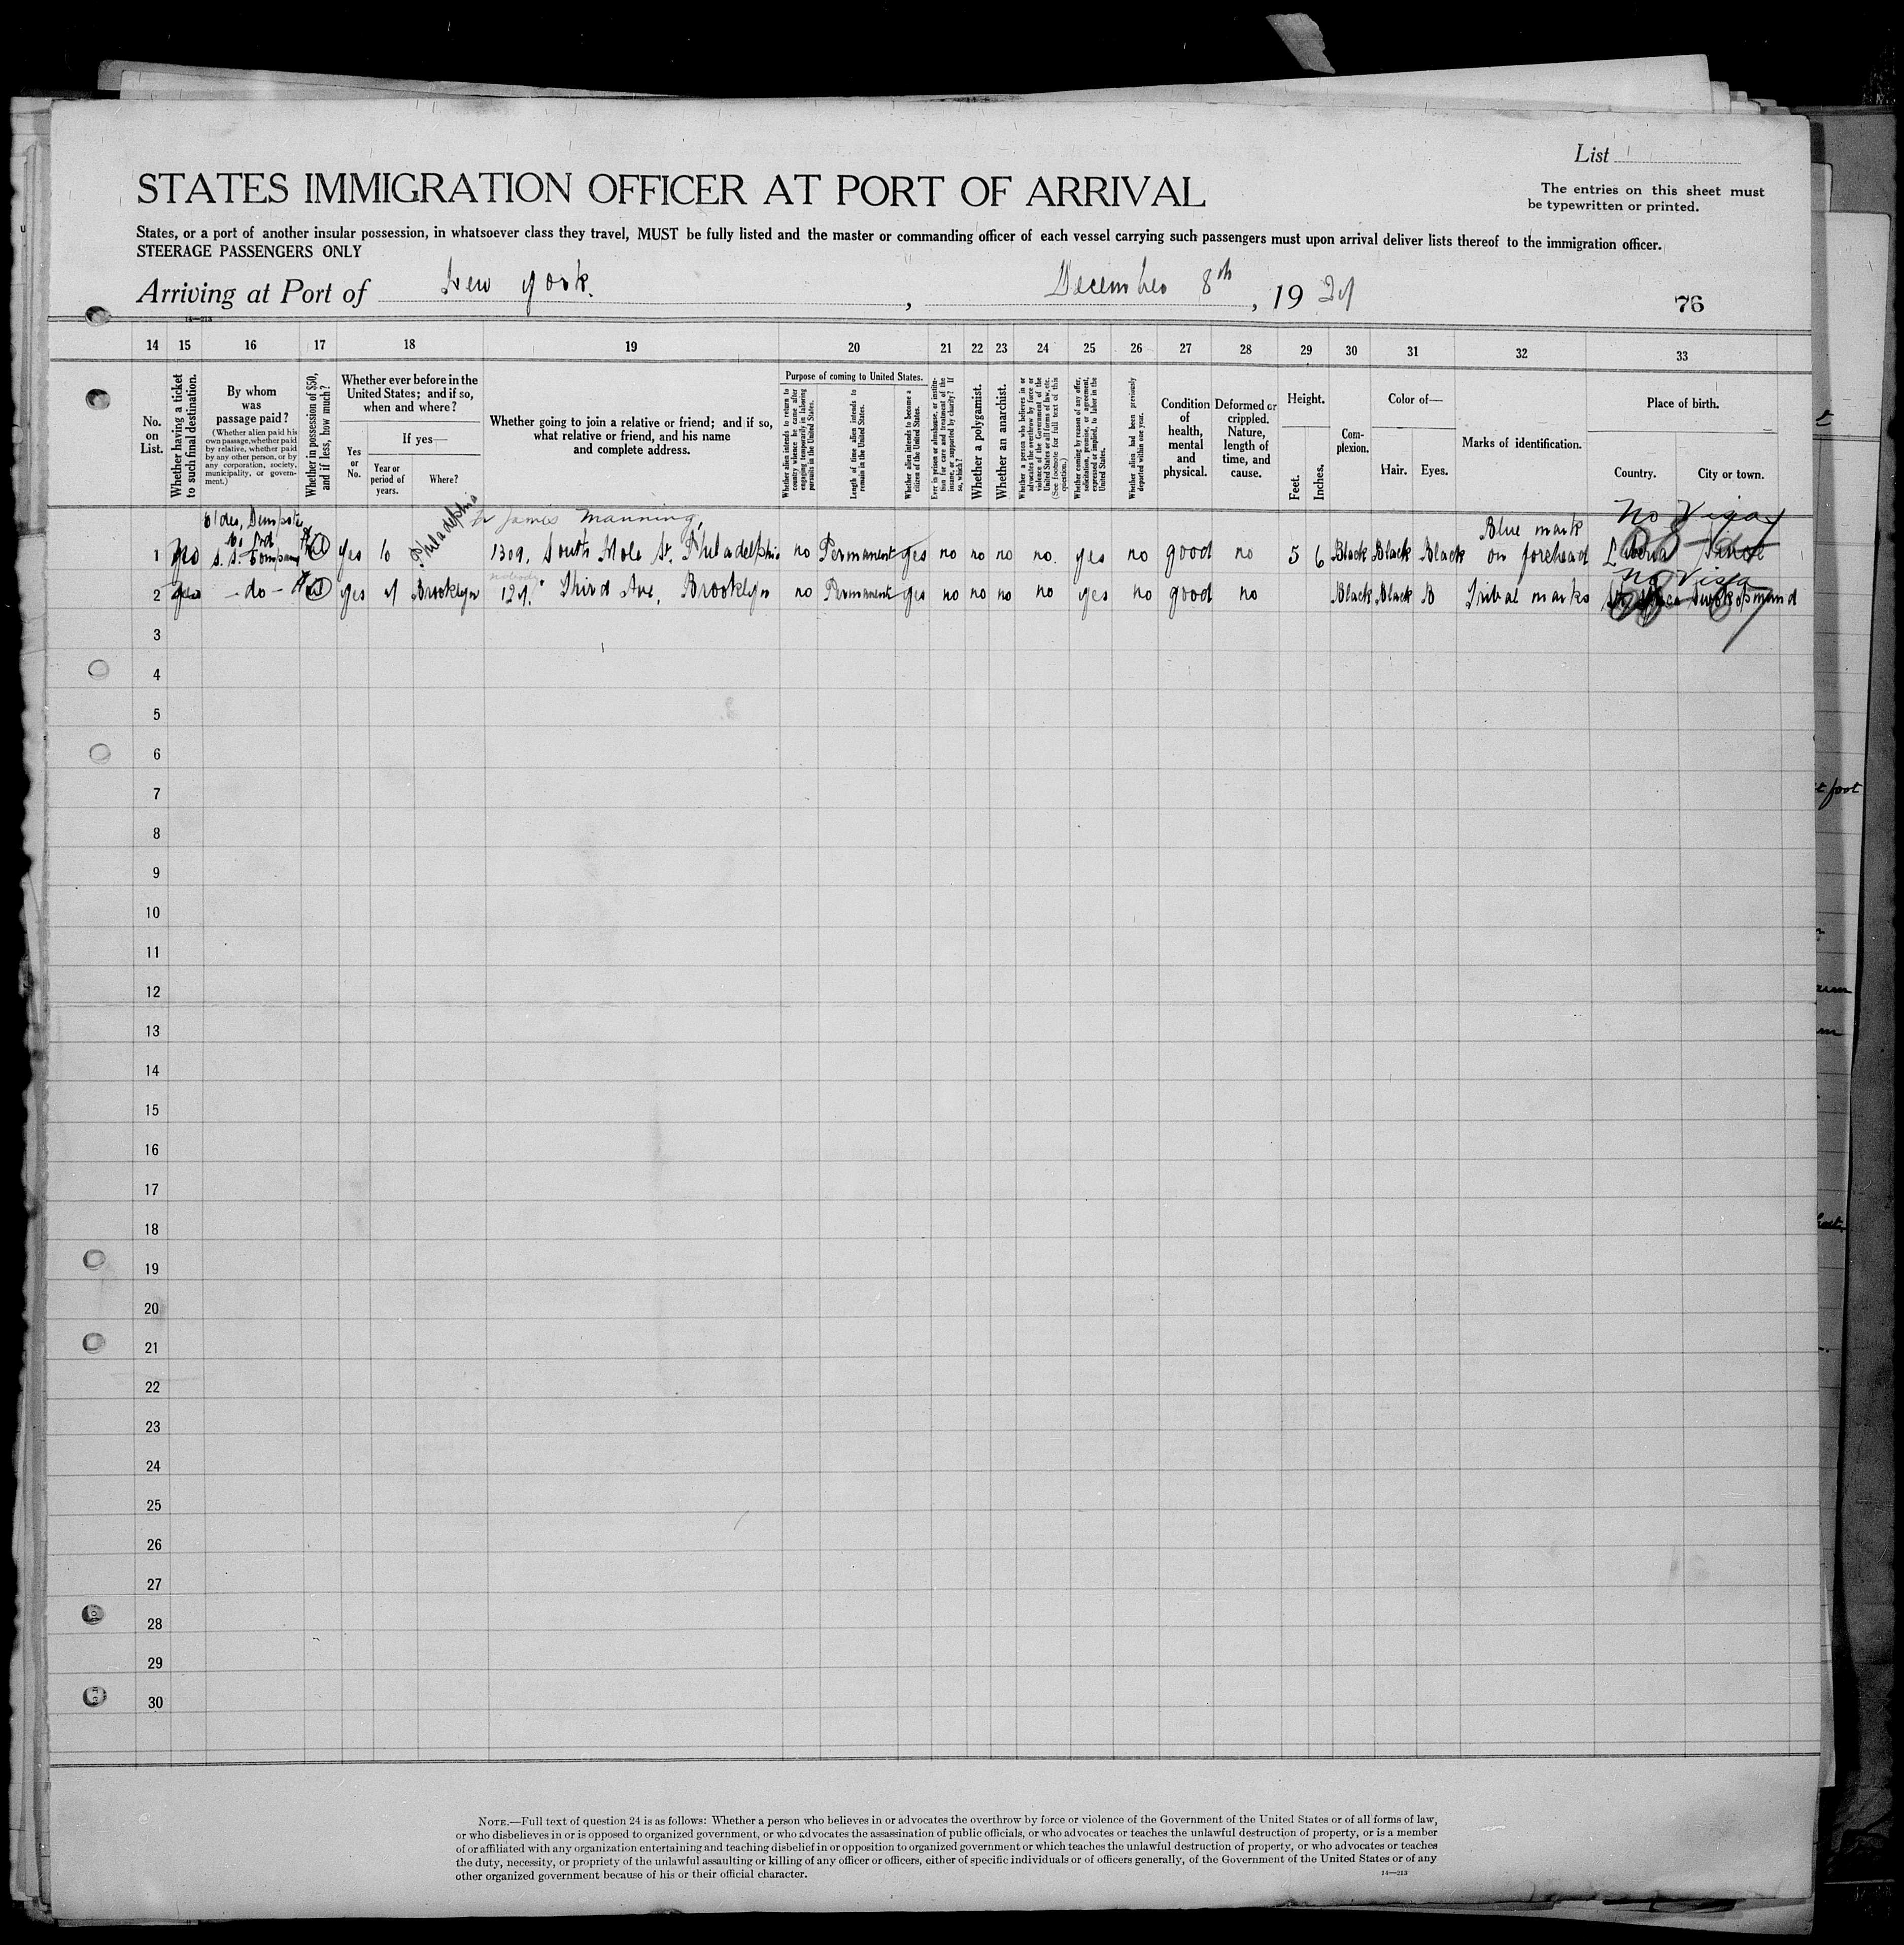 List
STATES IMMIGRATION OFFICER AT PORT OF ARRIVAL
The entries on this sheet must
be typewritten or printed.
States, or a port of another insular possession, in whatsoever class they travel, MUST be fully listed and the master or commanding officer of each vessel carrying such passengers must upon arrival deliver lists thereof to the immigration officer.
STEERAGE PASSENGERS ONLY
Arriving at Port of New York. , December 8th , 19
76
14—213
14 15 16 17 18 19 20 21 22 23 24 25 26 27 28 29 30 31 32 33
No. on List.
Whether having a ticket to such final destination.
By whom was passage paid?
(Whether alien paid his own passage, whether paid by relative, whether paid by any other person, or by any corporation, society, municipality, or government.)
Whether in possession of $50, and if less, how much?
Whether ever before in the United States; and if so, when and where?
Yes or No.
If yes—
Year or period of years.
Where?
Whether going to join a relative or friend; and if so, what relative or friend, and his name and complete address.
Purpose of coming to United States.
Whether alien intends to return to country whence he came after engaging temporarily in laboring pursuits in the United States.
Length of time alien intends to remain in the United States.
Whether alien intends to become a citizen of the United States.
Ever in prison or almshouse, or institution for care and treatment of the insane, or supported by charity? If so, which?
Whether a polygamist.
Whether an anarchist.
Whether a person who believes in or advocates the overthrow by force or violence of the Government of the United States or all forms of law, etc. (See footnote for full text of this question.)
Whether coming by reason of any offer, solicitation, promise, or agreement, expressed or implied, to labor in the United States.
Whether alien had been previously deported within one year.
Condition of health, mental and physical.
Deformed or crippled. Nature, length of time, and cause.
Height.
Feet.
Inches.
Complexion.
Color of—
Hair.
Eyes.
Marks of identification.
Place of birth.
Country.
City or town.
James Manning,
No Visa
1 no S. S. Company yes Philadelphia 1309, South Mole St. Philadelphia no Permanent yes no no no no. yes no good no 5 6 Black Black Black Blue mark on forehead Liberia
No Visa
2 yes - do - yes Brooklyn Third Ave, Brooklyn no Permanent yes no no no no yes no good no Black Black B Tribal marks
3
4
5
6
7
8
9
10
11
12
13
14
15
16
17
18
19
20
21
22
23
24
25
26
27
28
29
30
NOTE.—Full text of question 24 is as follows: Whether a person who believes in or advocates the overthrow by force or violence of the Government of the United States or of all forms of law,
or who disbelieves in or is opposed to organized government, or who advocates the assassination of public officials, or who advocates or teaches the unlawful destruction of property, or is a member
of or affiliated with any organization entertaining and teaching disbelief in or opposition to organized government or which teaches the unlawful destruction of property, or who advocates or teaches
the duty, necessity, or propriety of the unlawful assaulting or killing of any officer or officers, either of specific individuals or of officers generally, of the Government of the United States or of any
other organized government because of his or their official character.
14—213
foot